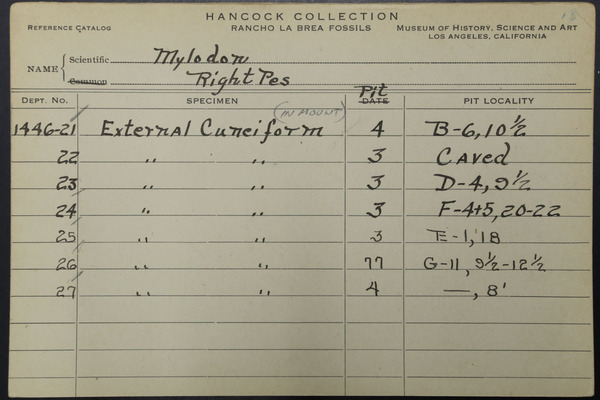 HANCOCK COLLECTION
REFERENCE CATALOG RANCHO LA BREA FOSSILS MUSEUM OF HISTORY, SCIENCE AND ART
LOS ANGELES, CALIFORNIA
NAME { Scientific Mylodon
Common Right Pes
Pit
DEPT. NO. SPECIMEN DATE PIT LOCALITY
(IN MOUNT)
1446-21 External Cuneiform 4 B-6, 10 1/2
22 " " 3 Caved
23 " " 3 D-4, 9 1/2
24 " " 3 F-4+5, 20-22
25 " " 3 E-1, 18
26 " " 77 G-11, 9 1/2-12 1/2
27 " " 4 —, 8'